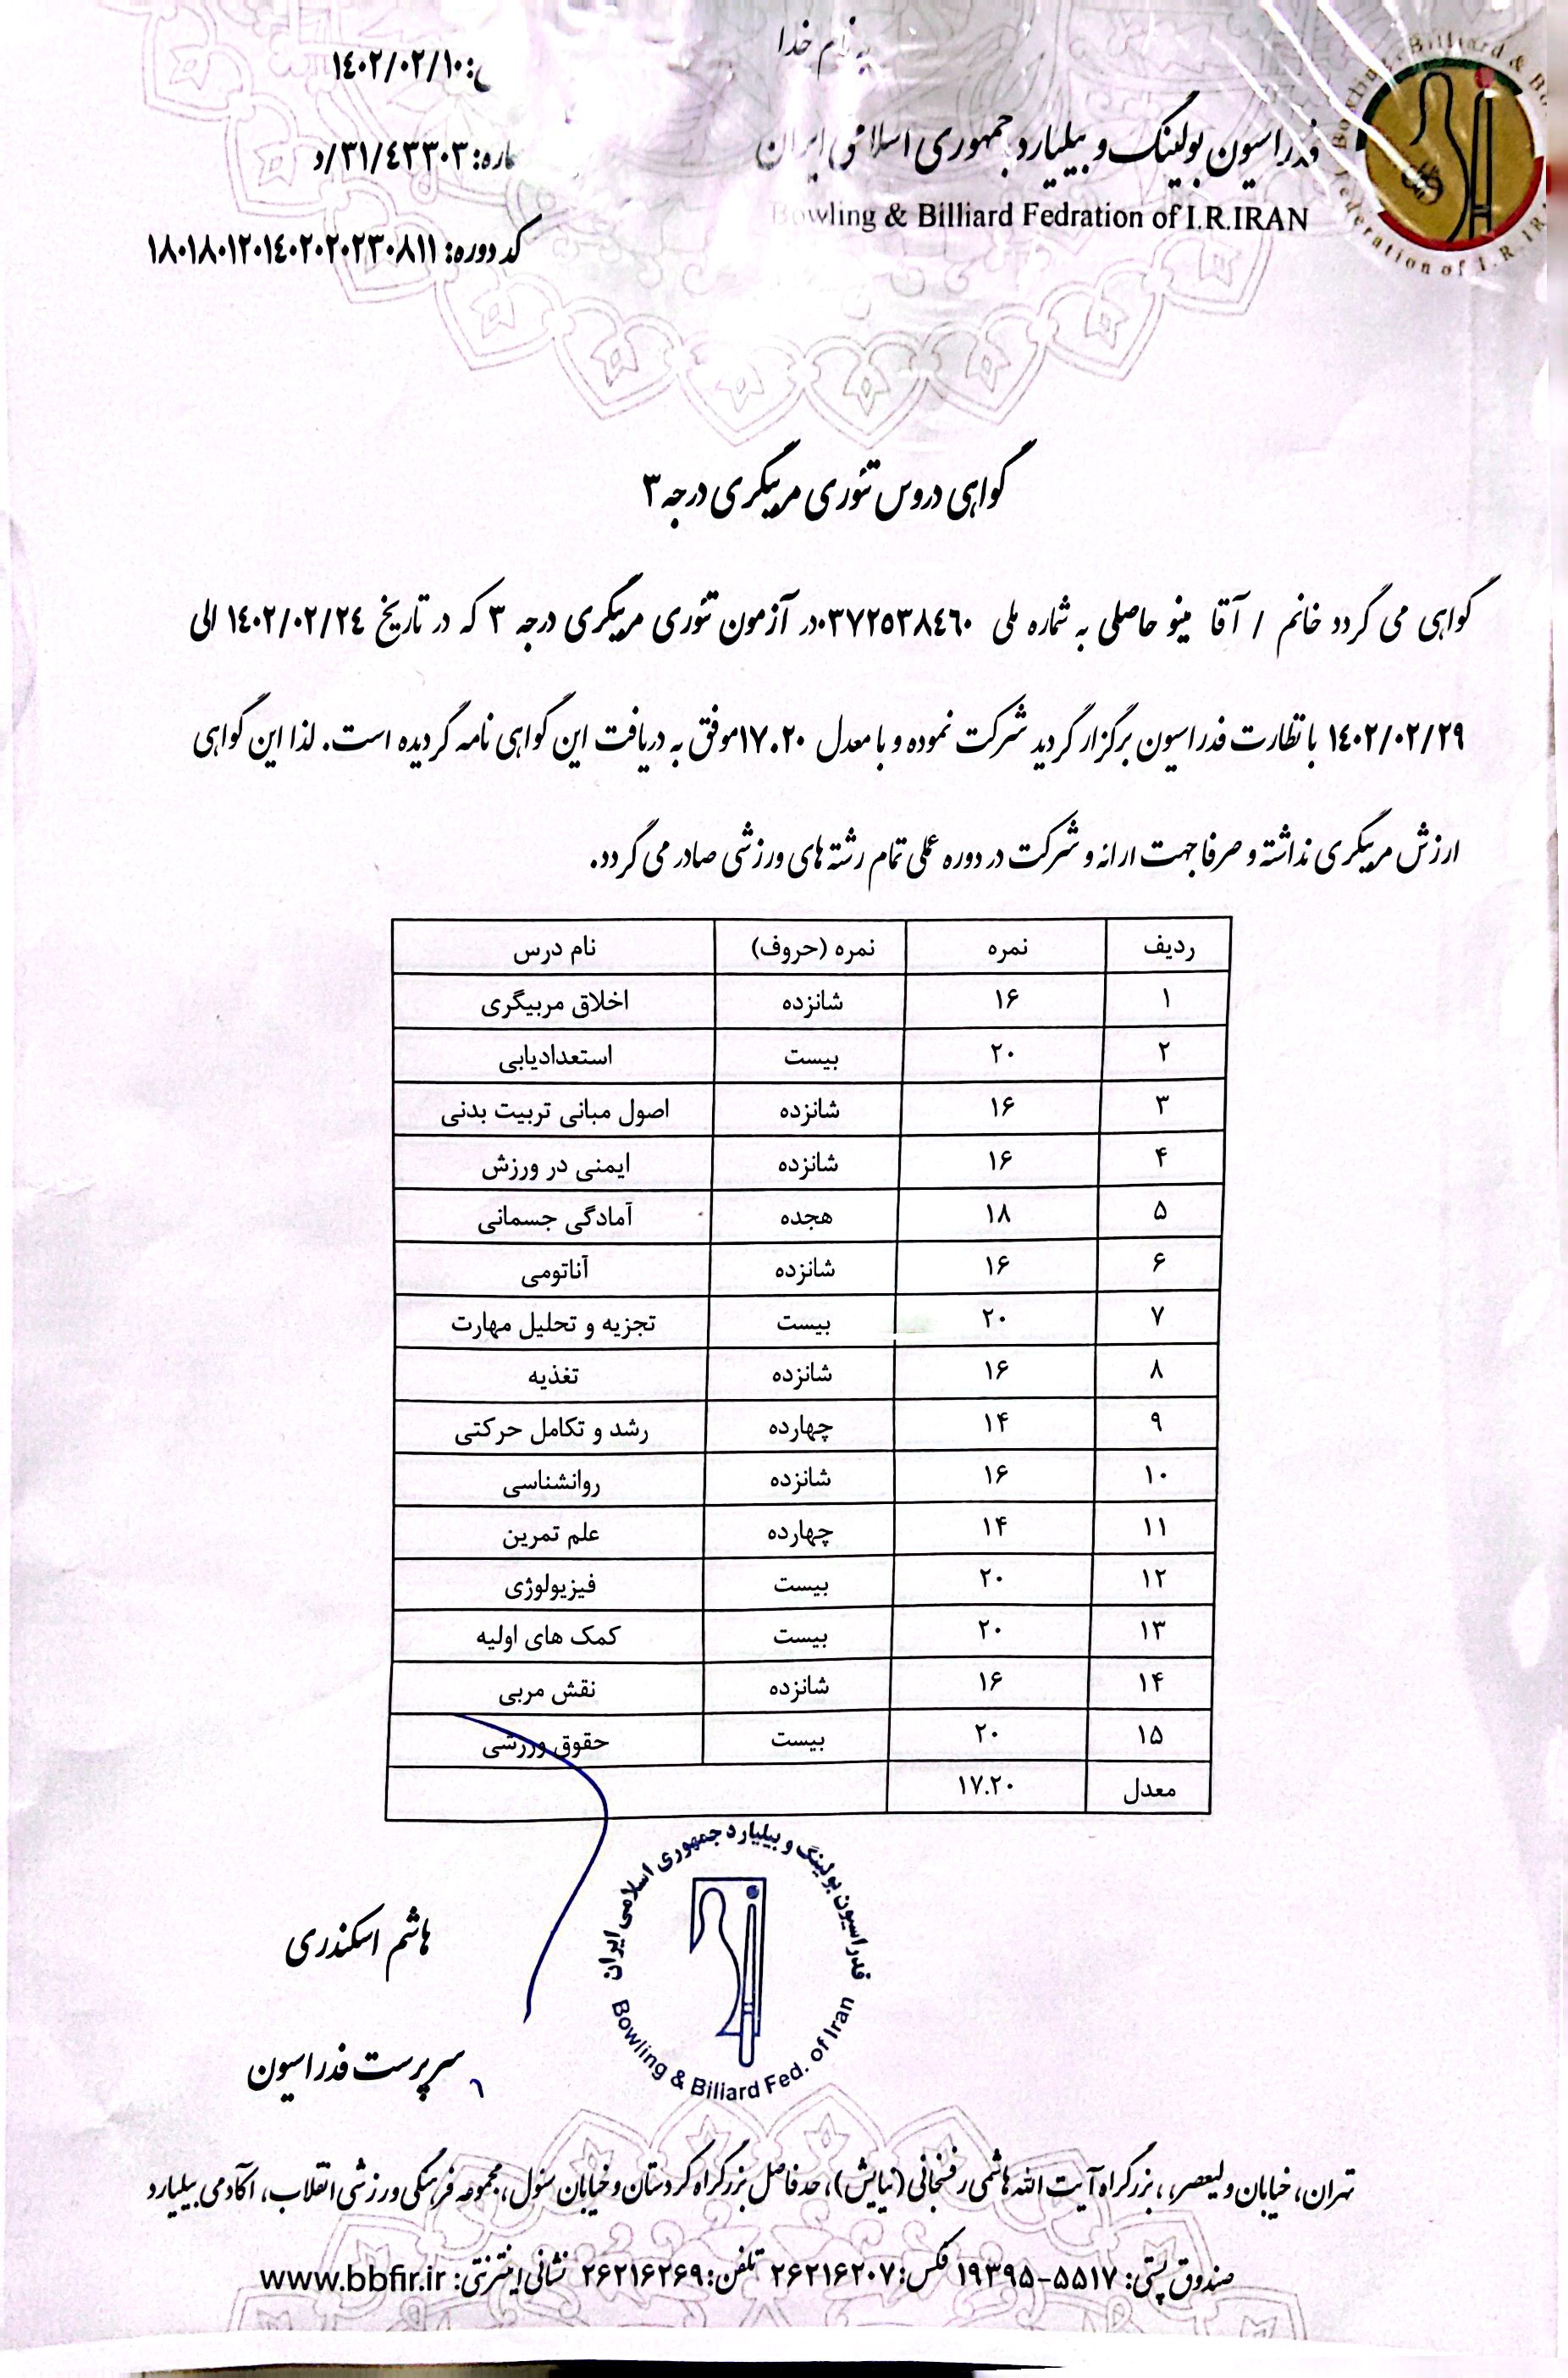 به نام خدا
۱۴۰۲/۰۲/۱۰
اره: ۳۱/۴۳۳۰۳/د
کد دوره: ۱۸۰۱۸۰۱۲۰۱۴۰۲۰۲۰۲۳۰۸۱۱
فدراسیون بولینگ و بیلیارد جمهوری اسلامی ایران
Bowling & Billiard Fedration of I.R.IRAN
Bowling, Billiard & Bo
Federation of I.R.IR
گواهی دروس تئوری مربیگری درجه ۳
گواهی می گردد خانم / آقا مینو حاصلی به شماره ملی ۰۳۷۲۵۳۸۴۶۰در آزمون تئوری مربیگری درجه ۳ که در تاریخ ۱۴۰۲/۰۲/۲۴ الی
۱۴۰۲/۰۲/۲۹ با نظارت فدراسیون برگزار گردید شرکت نموده و با معدل ۱۷.۲۰موفق به دریافت این گواهی نامه گردیده است. لذا این گواهی
ارزش مربیگری نداشته و صرفا جهت ارائه و شرکت در دوره عملی تمام رشته های ورزشی صادر می گردد.
ردیف نمره نمره (حروف) نام درس
۱ ۱۶ شانزده اخلاق مربیگری
۲ ۲۰ بیست استعدادیابی
۳ ۱۶ شانزده اصول مبانی تربیت بدنی
۴ ۱۶ شانزده ایمنی در ورزش
۵ ۱۸ هجده آمادگی جسمانی
۶ ۱۶ شانزده آناتومی
۷ ۲۰ بیست تجزیه و تحلیل مهارت
۸ ۱۶ شانزده تغذیه
۹ ۱۴ چهارده رشد و تکامل حرکتی
۱۰ ۱۶ شانزده روانشناسی
۱۱ ۱۴ چهارده علم تمرین
۱۲ ۲۰ بیست فیزیولوژی
۱۳ ۲۰ بیست کمک های اولیه
۱۴ ۱۶ شانزده نقش مربی
۱۵ ۲۰ بیست حقوق ورزشی
معدل ۱۷.۲۰
فدراسیون بولینگ و بیلیارد جمهوری اسلامی ایران
Bowling & Biliard Fed. of Iran
هاشم اسکندری
سرپرست فدراسیون
تهران، خیابان ولیعصر، بزرگراه آیت الله هاشمی رفسنجانی (نیایش)، حدفاصل بزرگراه کردستان و خیابان سئول، مجموعه فرهنگی ورزشی انقلاب، آکادمی بیلیارد
صندوق پستی: ۵۵۱۷-۱۹۳۹۵ فکس: ۲۶۲۱۶۲۰۷ تلفن: ۲۶۲۱۶۲۶۹ نشانی اینترنتی: www.bbfir.ir